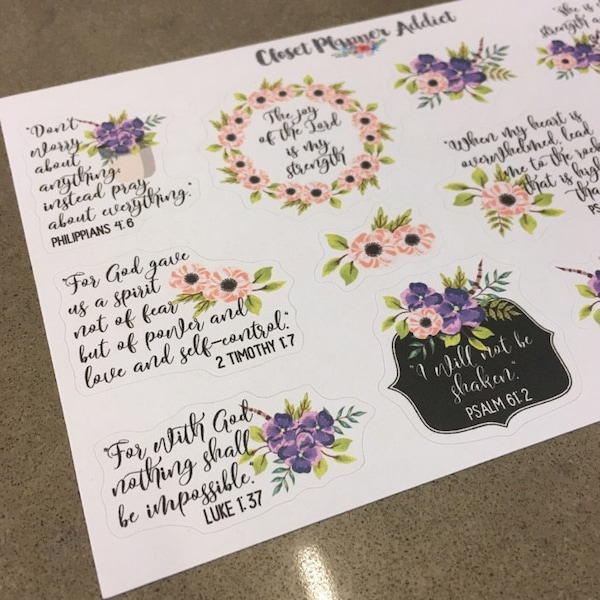 Closet Planner Addict
"Don't
worry
about
anything;
instead pray
about everything."
PHILIPPIANS 4:6
The joy
of the Lord
is my
strength
"She is
strength a
"When my heart is
overwhelmed, lead
me to the rock
that is high
tha
PS
"For God gave
us a spirit
not of fear
but of power and
love and self-control."
2 TIMOTHY 1:7
"I will not be
shaken".
PSALM 61:2
"For with God
nothing shall
be impossible."
LUKE 1:37